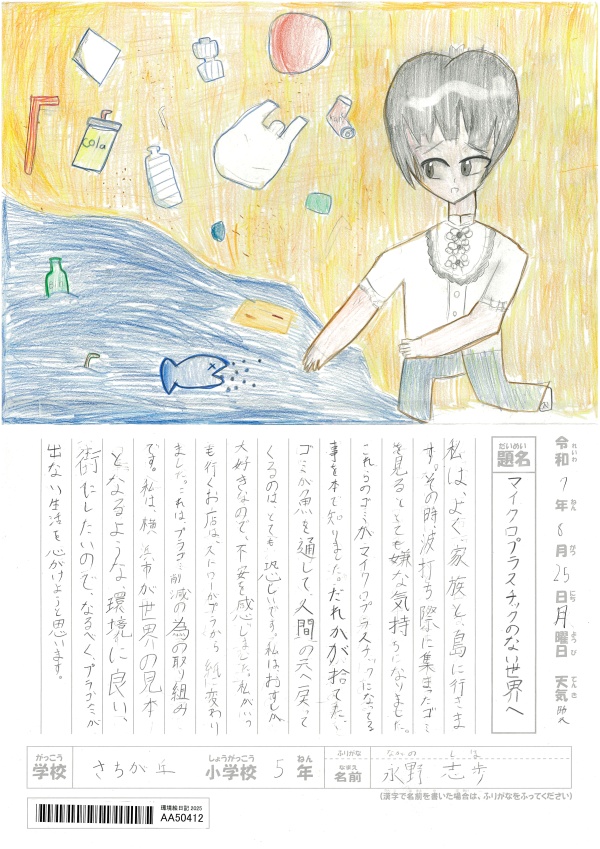 cola
令和7年8月25日月曜日 天気 晴れ
れいわ ねん がつ にち ようび てんき
だいめい
題名
マイクロプラスチックのない世界へ
私は、よく家族と、島に行きま
す。その時、波打ち際に集まったゴミ
を見ると、とても嫌な気持ちになりました。
これらのゴミがマイクロプラスチックになってる
事を本で知りました。だれかが捨てた、
ゴミが魚を通して、人間の元へ戻って
くるのは、とても恐しいです。私は、おすしが、
大好きなので、不安を感じました。私がいつ
も行くお店は、ストローがプラから紙に変わり
ました。これはプラゴミ削減の為の取り組み
です。私は、横浜市が世界の見本
となるような、環境に良い、
街にしたいので、なるべく、プラゴミが
出ない生活を心がけようと思います。
がっこう しょうがっこう ねん ふりがな ながの しほ
学校 さちが丘 小学校 5年 なまえ 名前 永野 志歩
(漢字で名前を書いた場合は、ふりがなをふってください)
環境絵日記2025
AA50412